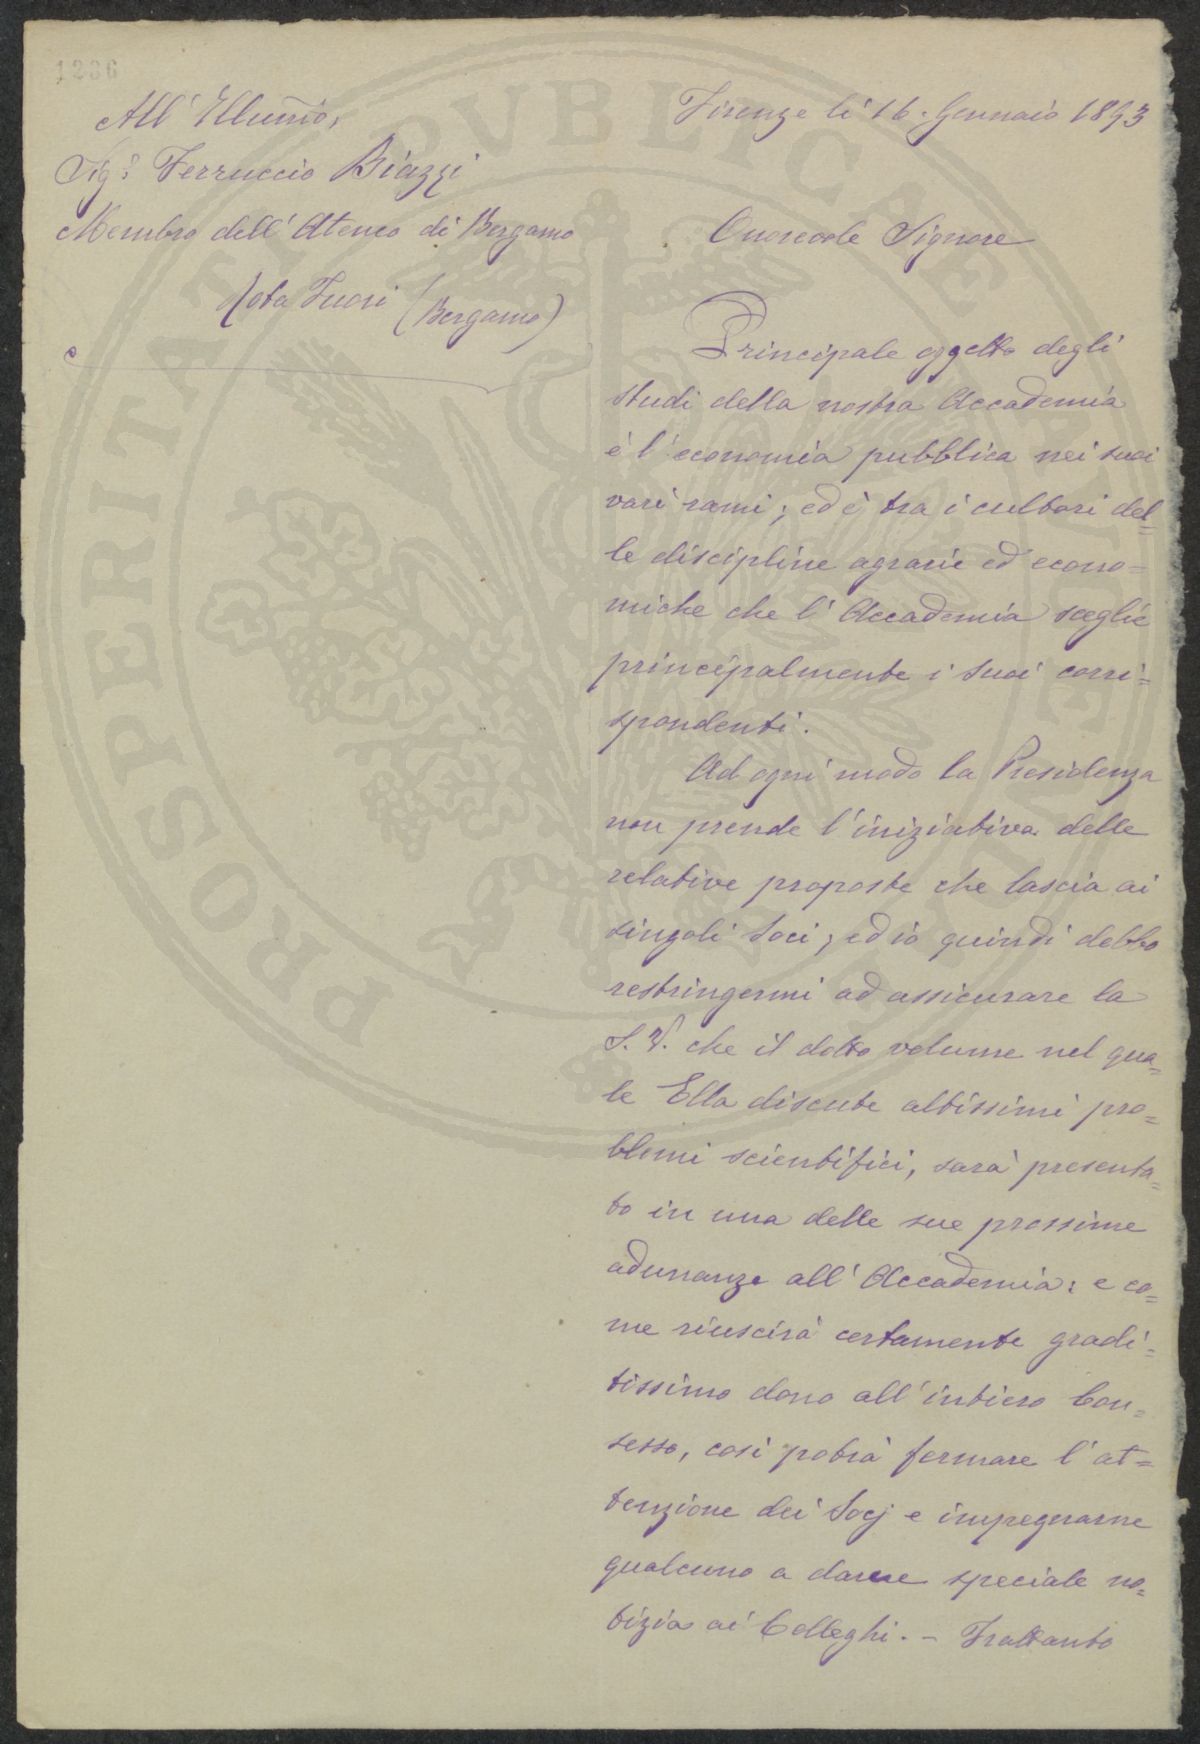 1236
All' Illummo,
Sigr Ferruccio Biazzi
Membro dell'Ateneo di Bergamo
Fuori (Bergamo)
Firenze li 16. Gennaio 1893
Onorevole Signore
Principale oggetto degli
studi della nostra Accademia
è l'economia pubblica nei suoi
vari rami; ed è tra i cultori del=
le discipline agrarie ed econo=
miche che l'Accademia sceglie
principalmente i suoi corri=
spondenti.
Ad ogni modo la Presidenza
non prende l'iniziativa delle
relative proposte che lascia ai
singoli Soci; ed io quindi debbo
restringermi ad assicurare la
S. V. che il dotto volume nel qua=
le Ella discute altissimi pro=
blemi scientifici, sarà presenta=
to in una delle sue prossime
adunanze all'Accademia: e co=
me riuscirà certamente gradi=
tissimo dono all'intiero Con=
sesso, così potrà fermare l'at=
tenzione dei Socj e impegnarne
qualcuno a darne speciale no=
tizia ai Colleghi. - Frattanto
PROSPERITATI PUBLICAE AUGENDAE